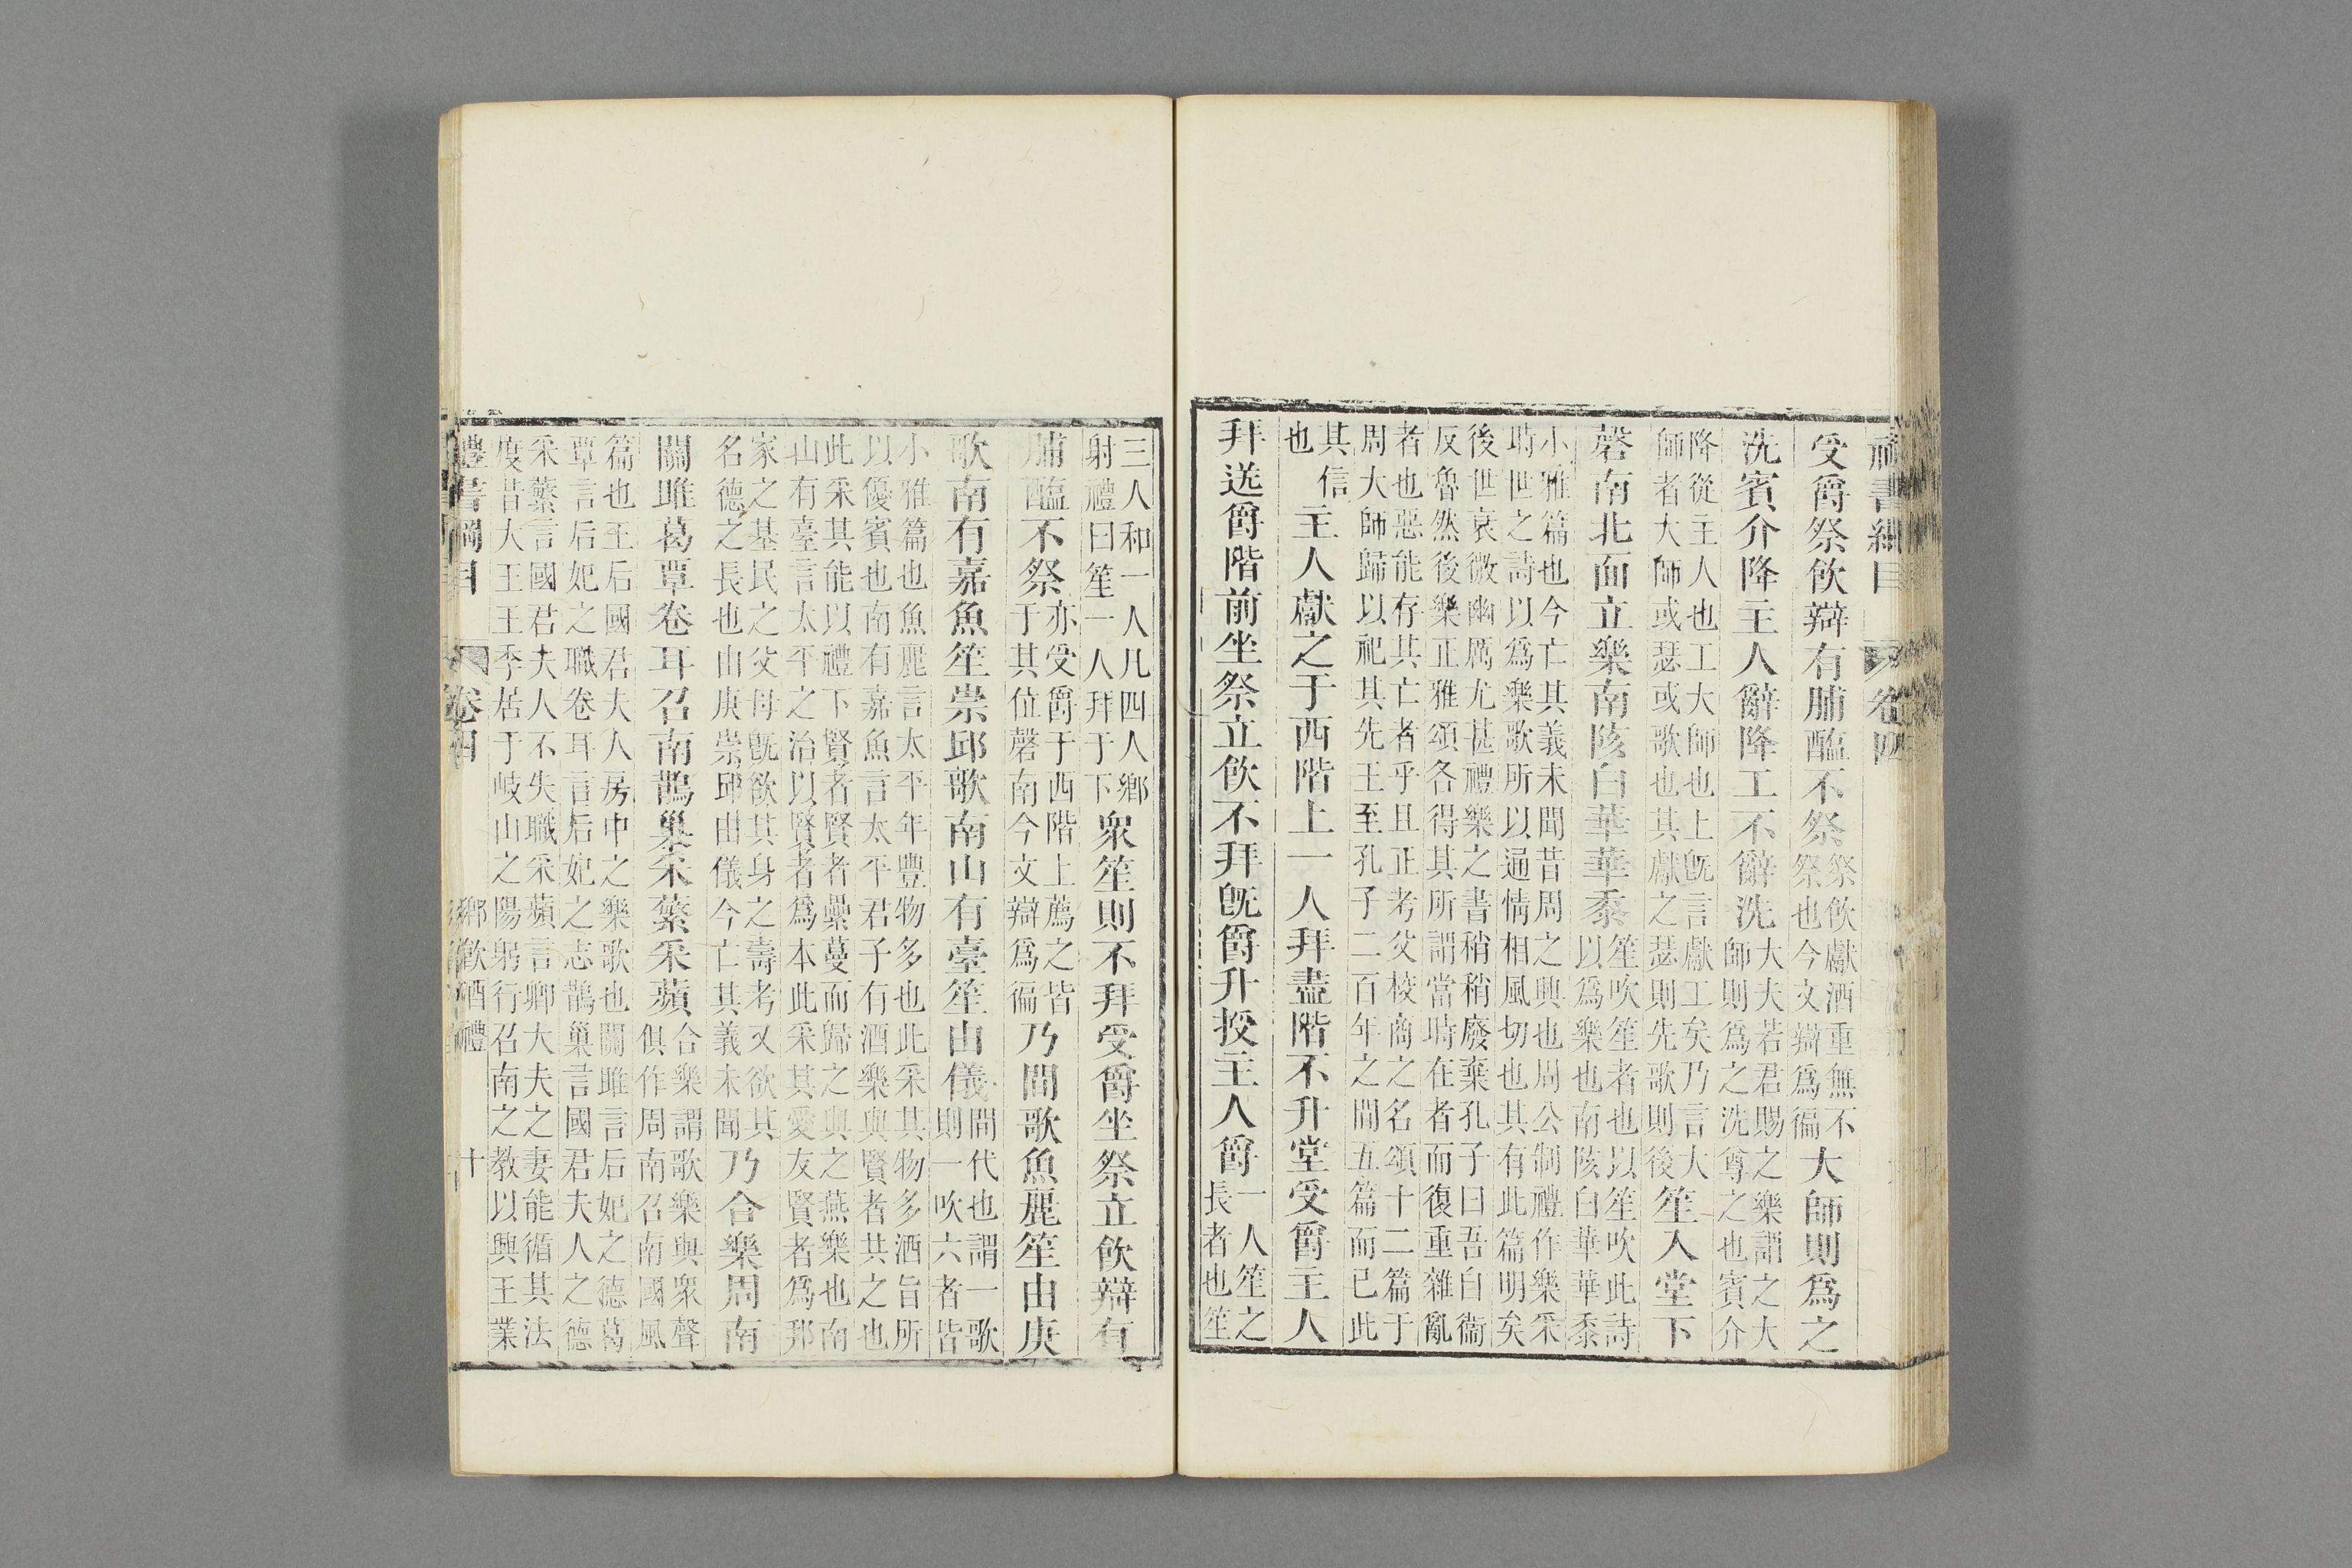 禮書綱目 卷四
受爵祭飲辯有脯醢不祭祭飲獻酒重無不祭也今文辯爲徧大師則爲之
洗賓介降主人辭降工不辭洗大夫若君賜之樂謂之大師則爲之洗尊之也賓介
降從主人也工大師也上旣言獻工矣乃言大師者大師或瑟或歌也其獻之瑟則先歌則後笙入堂下
磬南北面立樂南陔白華華黍笙吹笙者也以笙吹此詩以爲樂也南陔白華華黍
小雅篇也今亡其義未聞昔周之興也周公制禮作樂采
時世之詩以爲樂歌所以通情相風切也其有此篇明矣
後世衰微幽厲尤甚禮樂之書稍稍廢棄孔子曰吾自衞
反魯然後樂正雅頌各得其所謂當時在者而復重雜亂
者也惡能存其亡者乎且正考父校商之名頌十二篇于
周大師歸以祀其先王至孔子二百年之間五篇而已此
其信也主人獻之于西階上一人拜盡階不升堂受爵主人
拜送爵階前坐祭立飲不拜旣爵升授主人爵一人笙之長者也笙
三人和一人凡四人鄉射禮曰笙一人拜于下衆笙則不拜受爵坐祭立飲辯有
脯醢不祭亦受爵于西階上薦之皆于其位磬南今文辯爲徧乃間歌魚麗笙由庚
歌南有嘉魚笙崇邱歌南山有臺笙由儀間代也謂一歌則一吹六者皆
小雅篇也魚麗言太平年豐物多也此采其物多酒旨所
以優賓也南有嘉魚言太平君子有酒樂與賢者共之也
此采其能以禮下賢者賢者纍蔓而歸之與之燕樂也南
山有臺言太平之治以賢者爲本此采其愛友賢者爲邦
家之基民之父母旣欲其身之壽考又欲其名德之長也由庚崇邱由儀今亡其義未聞乃合樂周南
關雎葛覃卷耳召南鵲巢采蘩采蘋合樂謂歌樂與衆聲俱作周南召南國風
篇也王后國君夫人房中之樂歌也關雎言后妃之德葛
覃言后妃之職卷耳言后妃之志鵲巢言國君夫人之德
采蘩言國君夫人不失職采蘋言卿大夫之妻能循其法
度昔大王王季居于岐山之陽躬行召南之教以興王業
禮書綱目 卷四 鄉飲酒禮 十